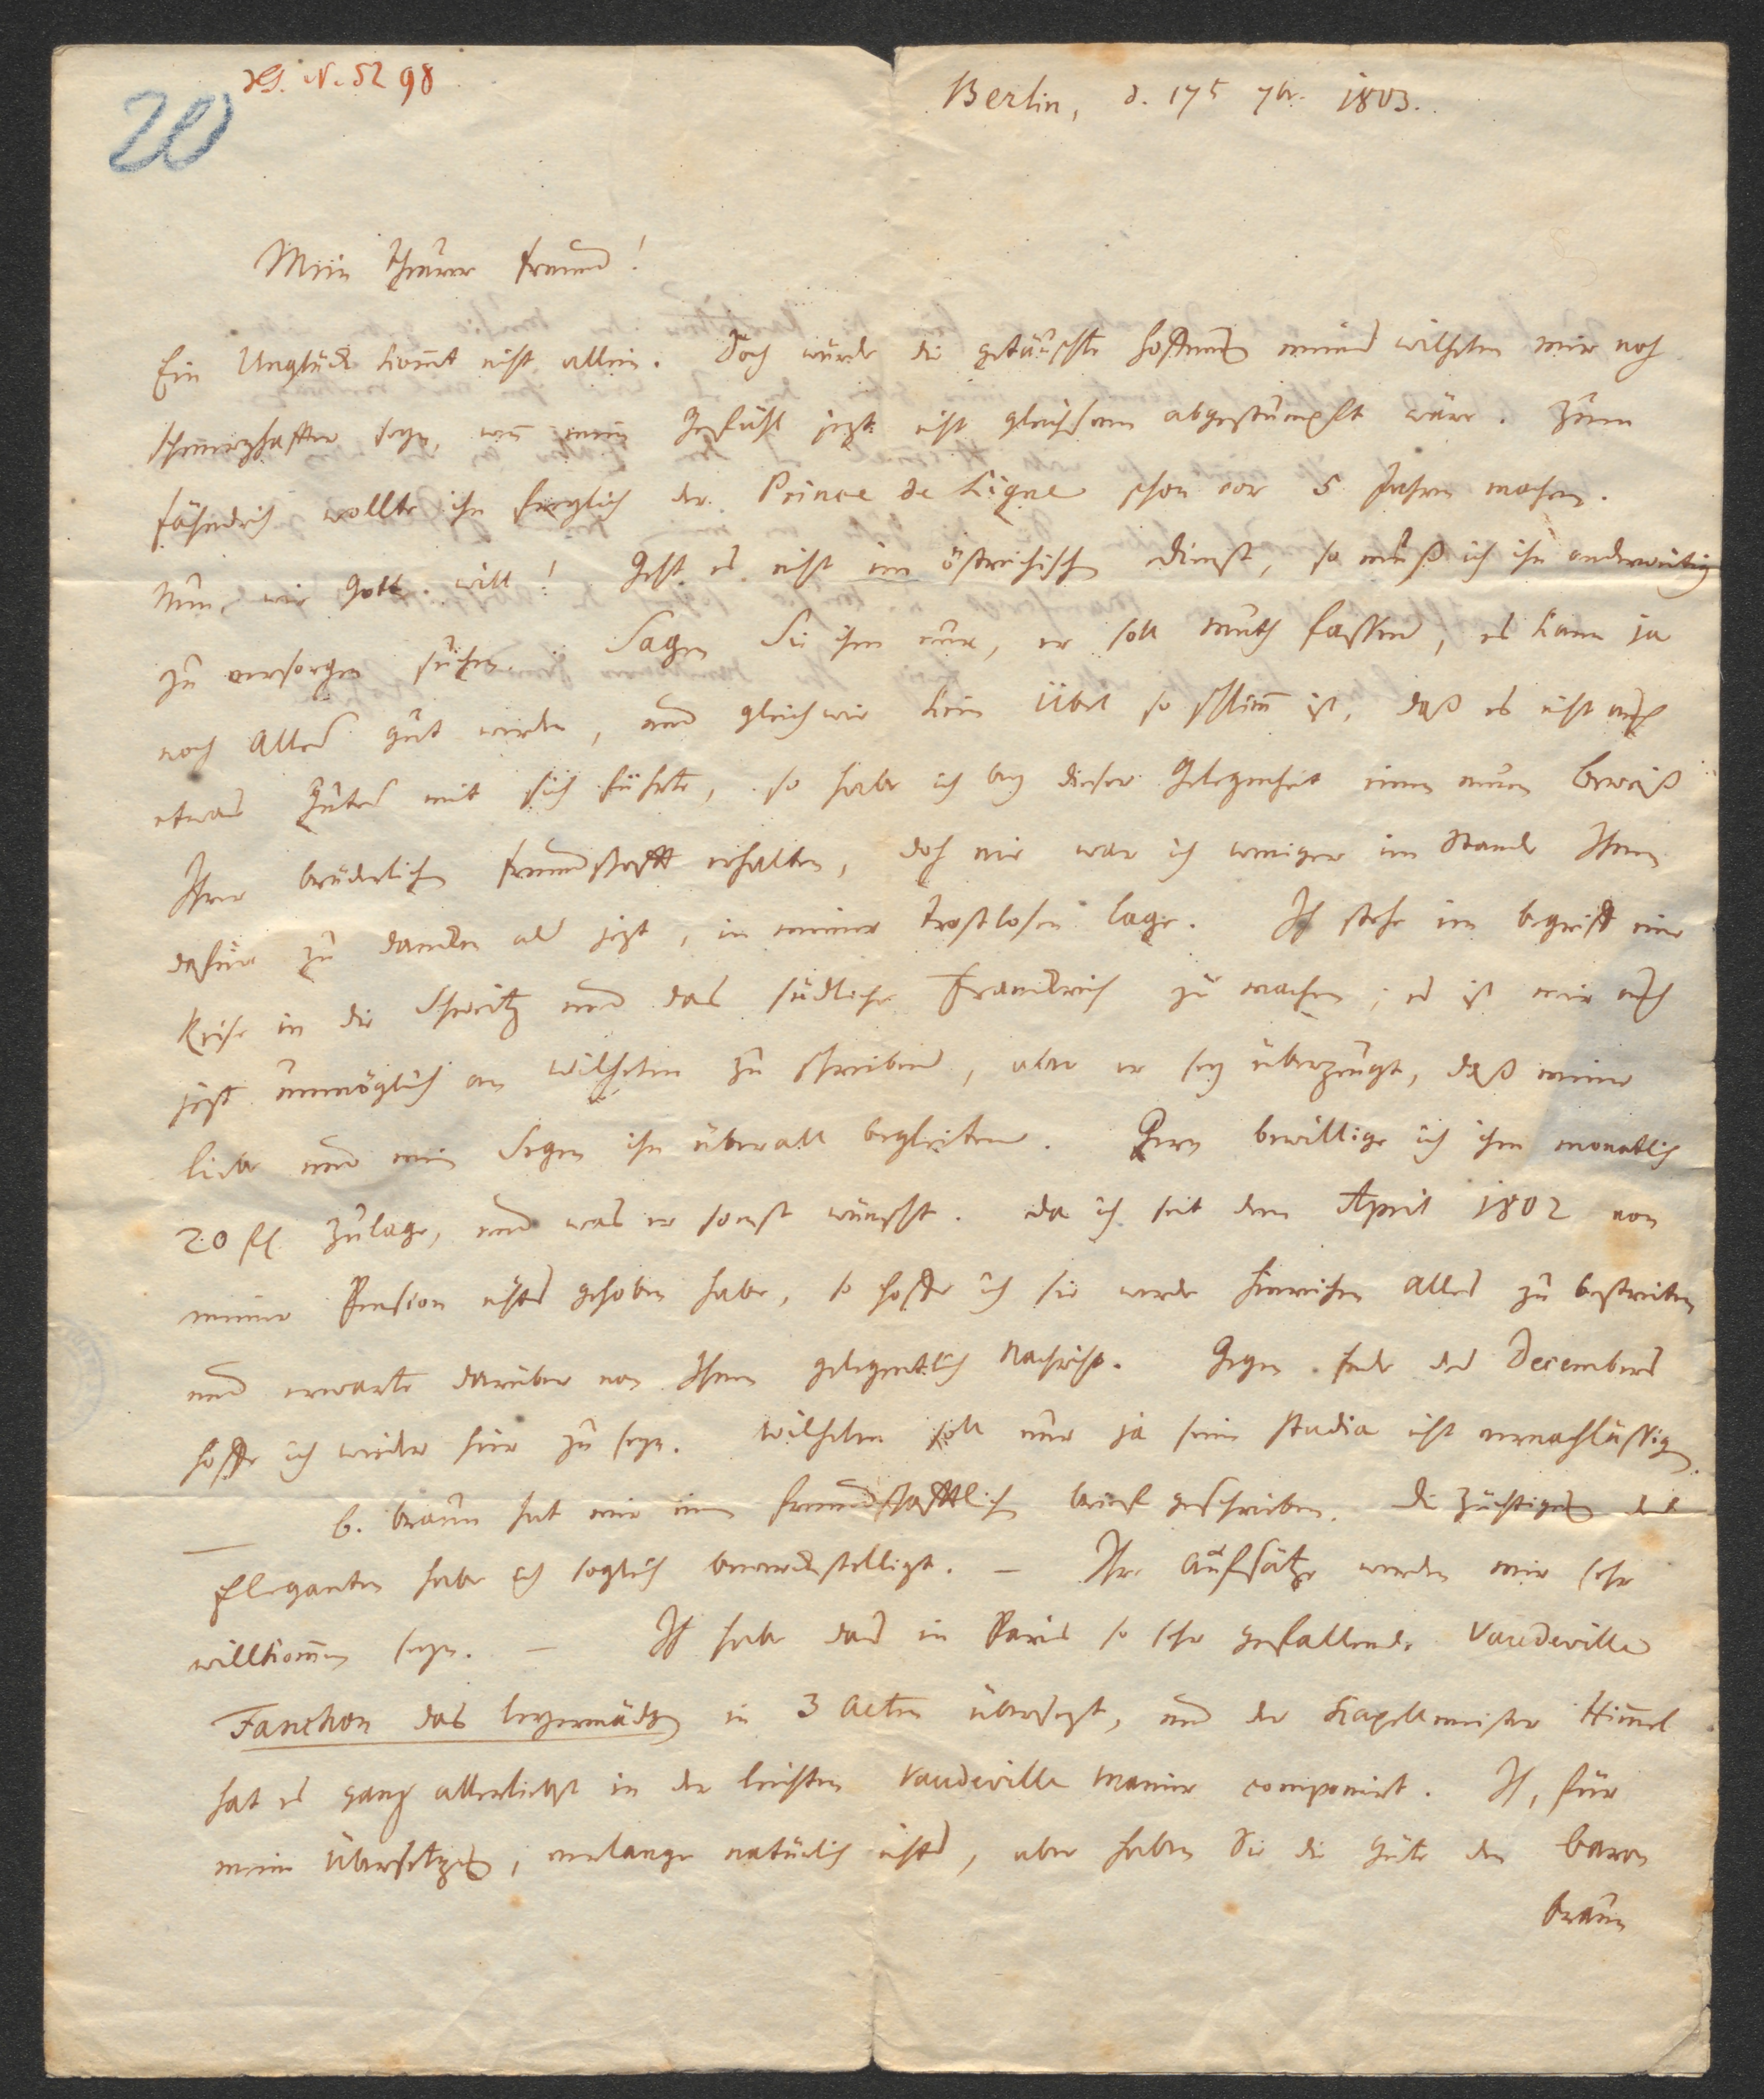 H. N. 5298
20
Berlin, d. 17t 7br. 1803.
Mein theurer Freund!
Ein Unglück kom̅t nicht allein. Doch würde die getäuschte Hoffnung meines Wilhelm mir noch
schmerzhafter seyn, wen̅ mein Gefühl jezt nicht gleichsam abgestumpft wäre. Zum
Fähndrich wollte ihn freylich der Prince de Ligne schon vor 5 Jahren machen.
Nun, wie Gott will! Geht es nicht im östreichischen Dienst, so muß ich ihn anderweitig
zu versorgen suchen. Sagen Sie ihm nur, er soll Muth fassen, es kann ja
noch Alles gut werden, und gleichwie kein Übel so schlim̅ ist, daß es nicht auch
etwas Gutes mit sich führte, so habe ich bey dieser Gelegenheit einen neuen Beweiß
Ihrer brüderlichen Freundschafft erhalten, doch nie war ich weniger im Stande Ihnen
dafür zu danken als jezt, in meiner trostlosen Lage. Ich stehe im Begriff eine
Reise in die Schweitz und das südliche Frankreich zu machen; es ist mir auch
jezt unmöglich an Wilhelm zu schreiben, aber er sey überzeugt, daß meine
Liebe und mein Segen ihn überall begleiten. Gern bewillige ich ihm monatlich
20 fl. Zulage, und was er sonst wünscht. Da ich seit dem April 1802 von
meiner Pension nichts gehoben habe, so hoffe ich sie werde hinreichen Alles zu bestreiten
und erwarte darüber von Ihnen gelegentlich Nachricht. Gegen Ende des Decembers
hoffe ich wieder hier zu seyn. Wilhelm soll nur ja seine Studia nicht vernachlässigen.
— B. Braun hat mir einen freundschafftlichen Brief geschrieben. Die Züchtigung des
Eleganten habe ich sogleich bewerckstelligt. — Ihre Aufsätze werden mir sehr
willkom̅en seyn. — Ich habe das in Paris so sehr gefallende Vaudeville
Fanchon das Leyermädchen in 3 Acten übersezt, und der Kapellmeister Him̅el
hat es ganz allerliebst in der leichten Vaudeville Manier componirt. Ich, für
meine Übersetzung, verlange natürlich nichts, aber haben Sie die Güte den Baron
Braun